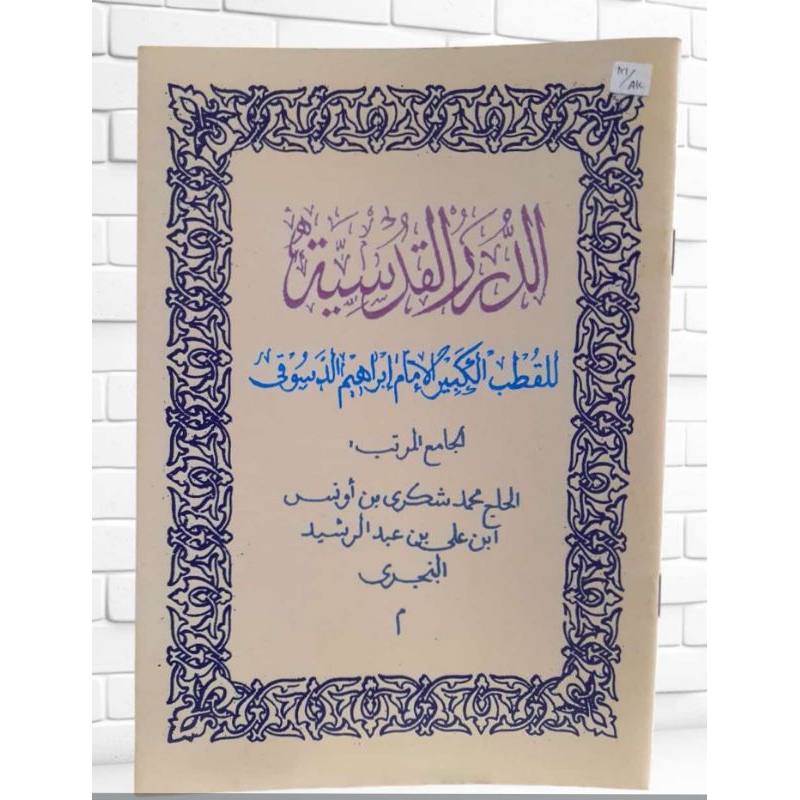 M/AK
الدُّرَرُ القُدْسِيَّة
للقُطب الكَبِيْر الإمام إبراهيم الدَّسوقى
الجامع المرتب:
الحاج محمد شكرى بن أونس
ابن على بن عبد الرشيد
البنجرى
م